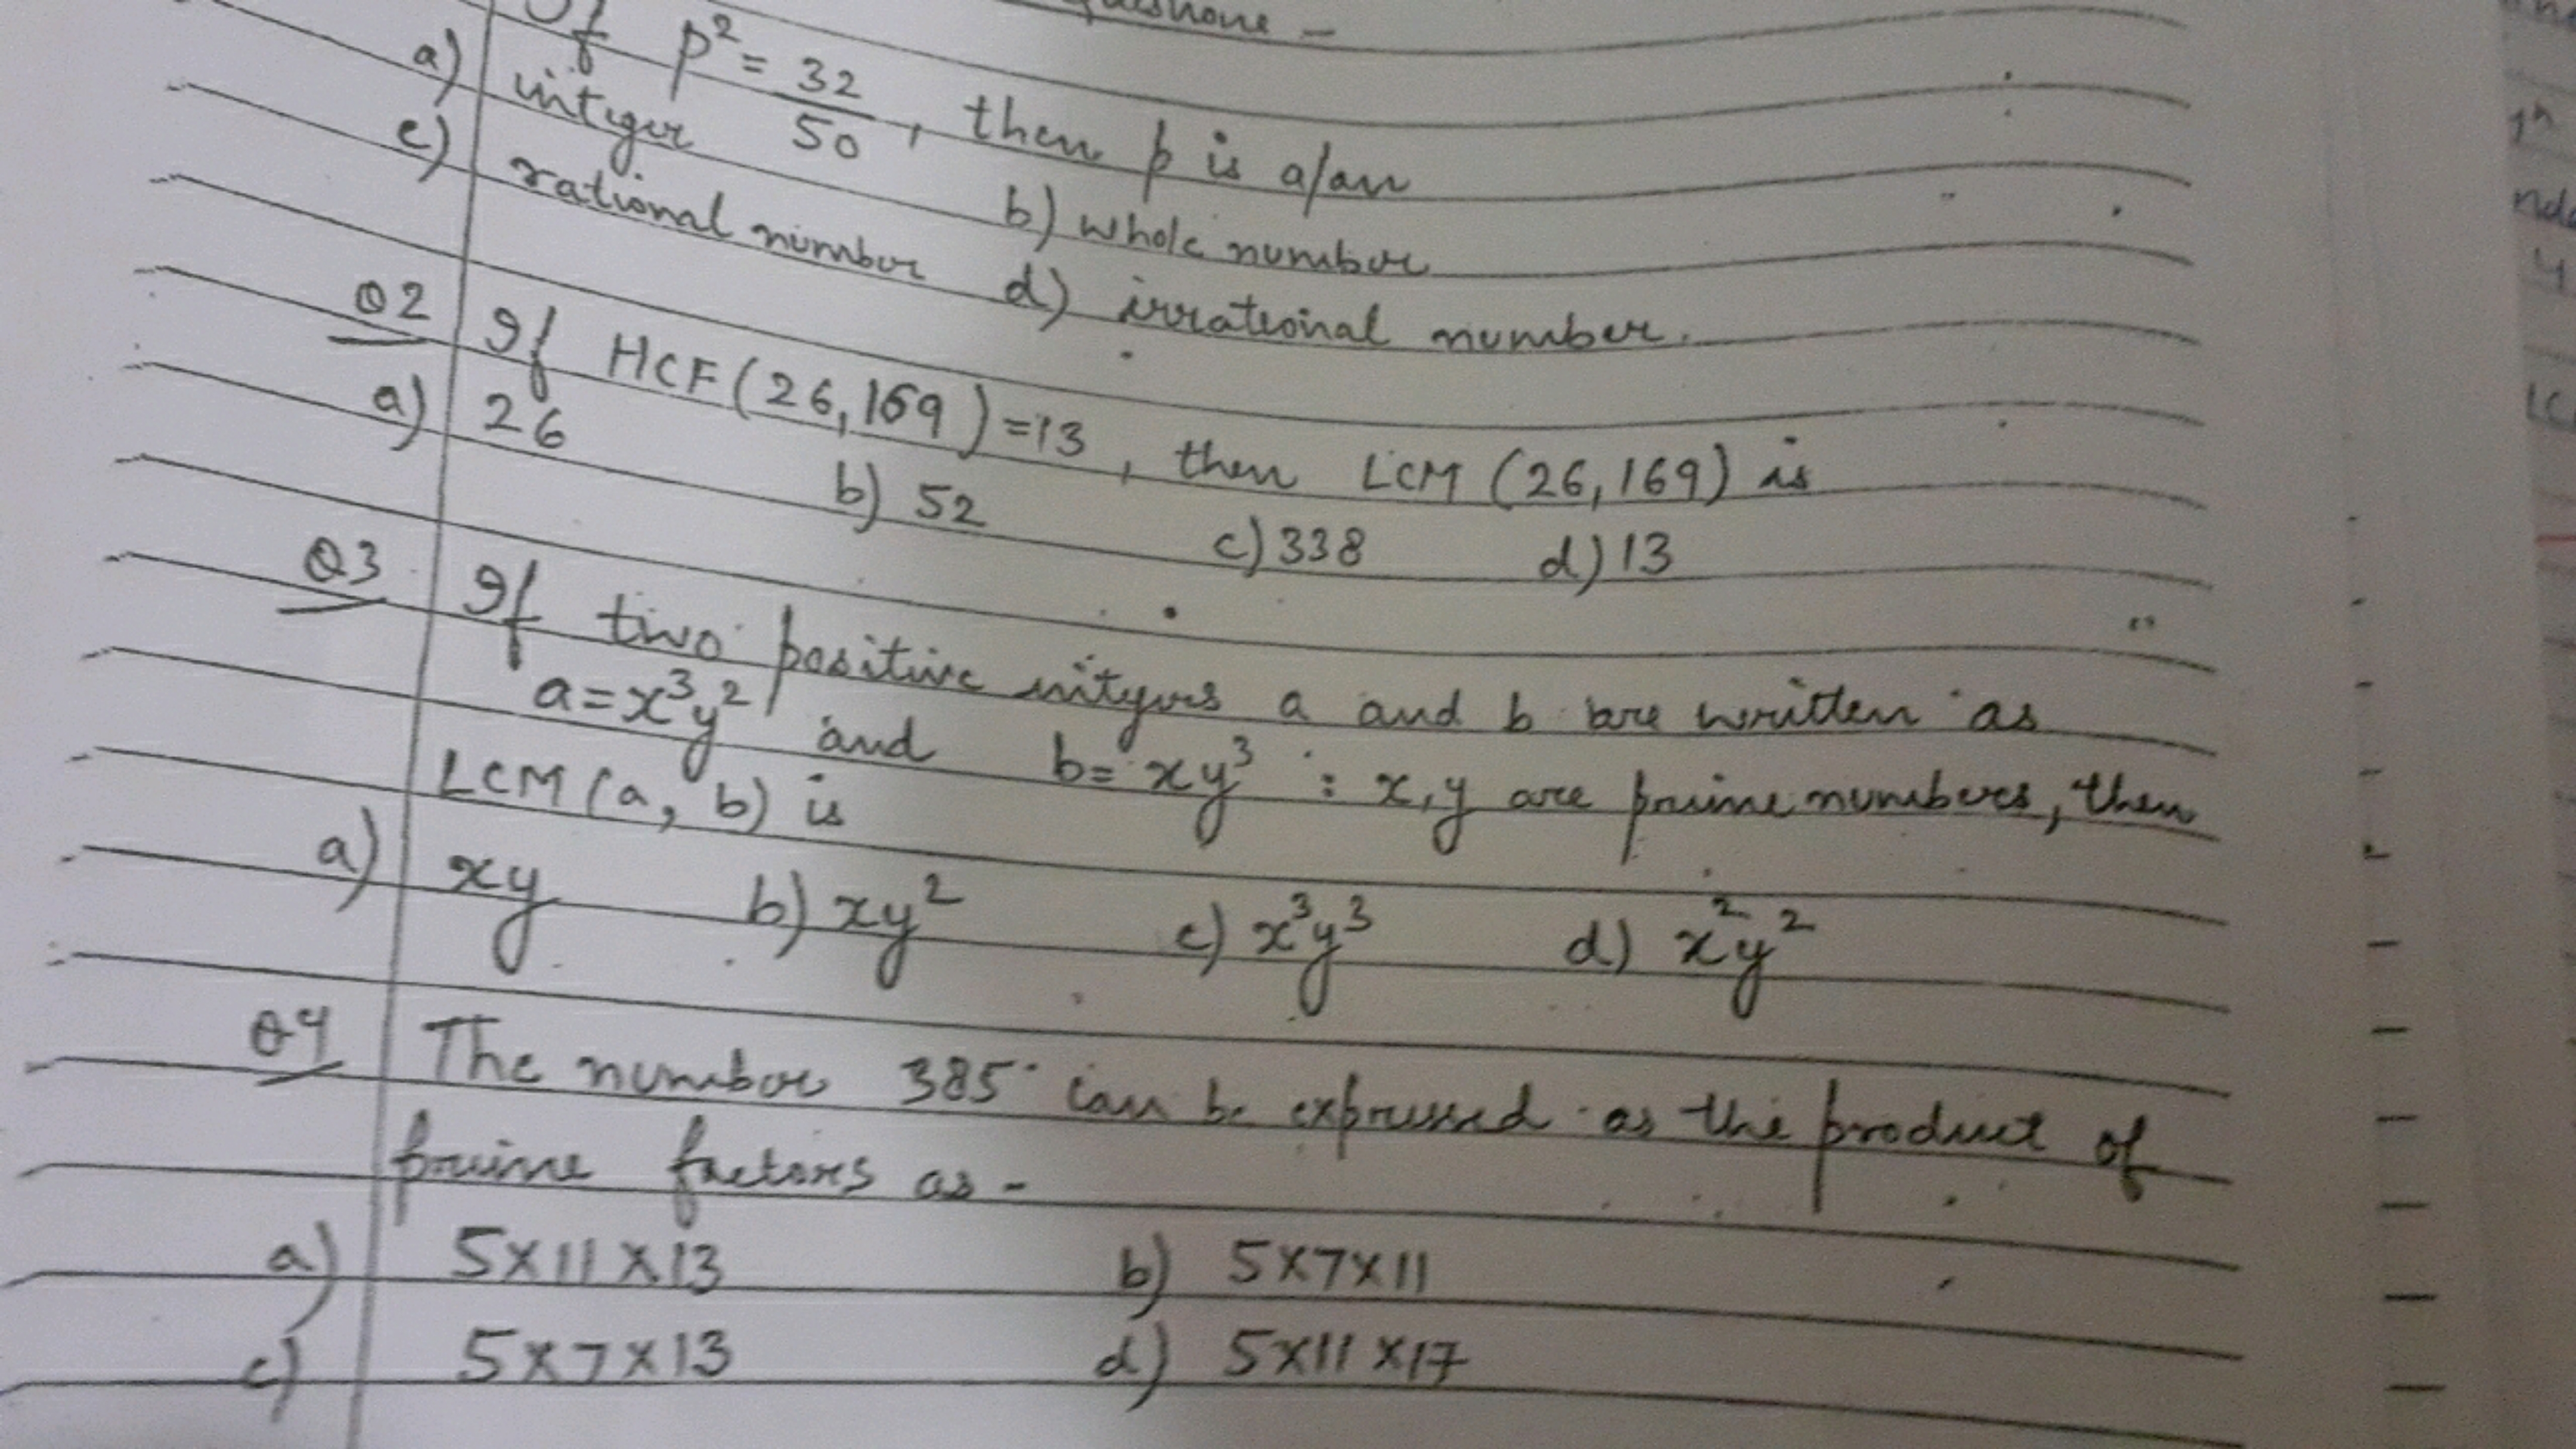 If p² = 32/50, then p is a/an
a) integer b) whole number
c) rational number d) irrational number.
Q2 If HCF(26,169)=13, then LCM (26,169) is
a) 26 b) 52 c) 338 d) 13
Q3 If two positive integers a and b are written as
a=x³y² and b= xy³ : x,y are prime numbers, then
LCM (a, b) is
a) xy b) xy² c) x³y³ d) x²y²
Q4 The number 385 can be expressed as the product of
prime factors as -
a) 5X11X13 b) 5X7X11
c) 5X7X13 d) 5X11X17